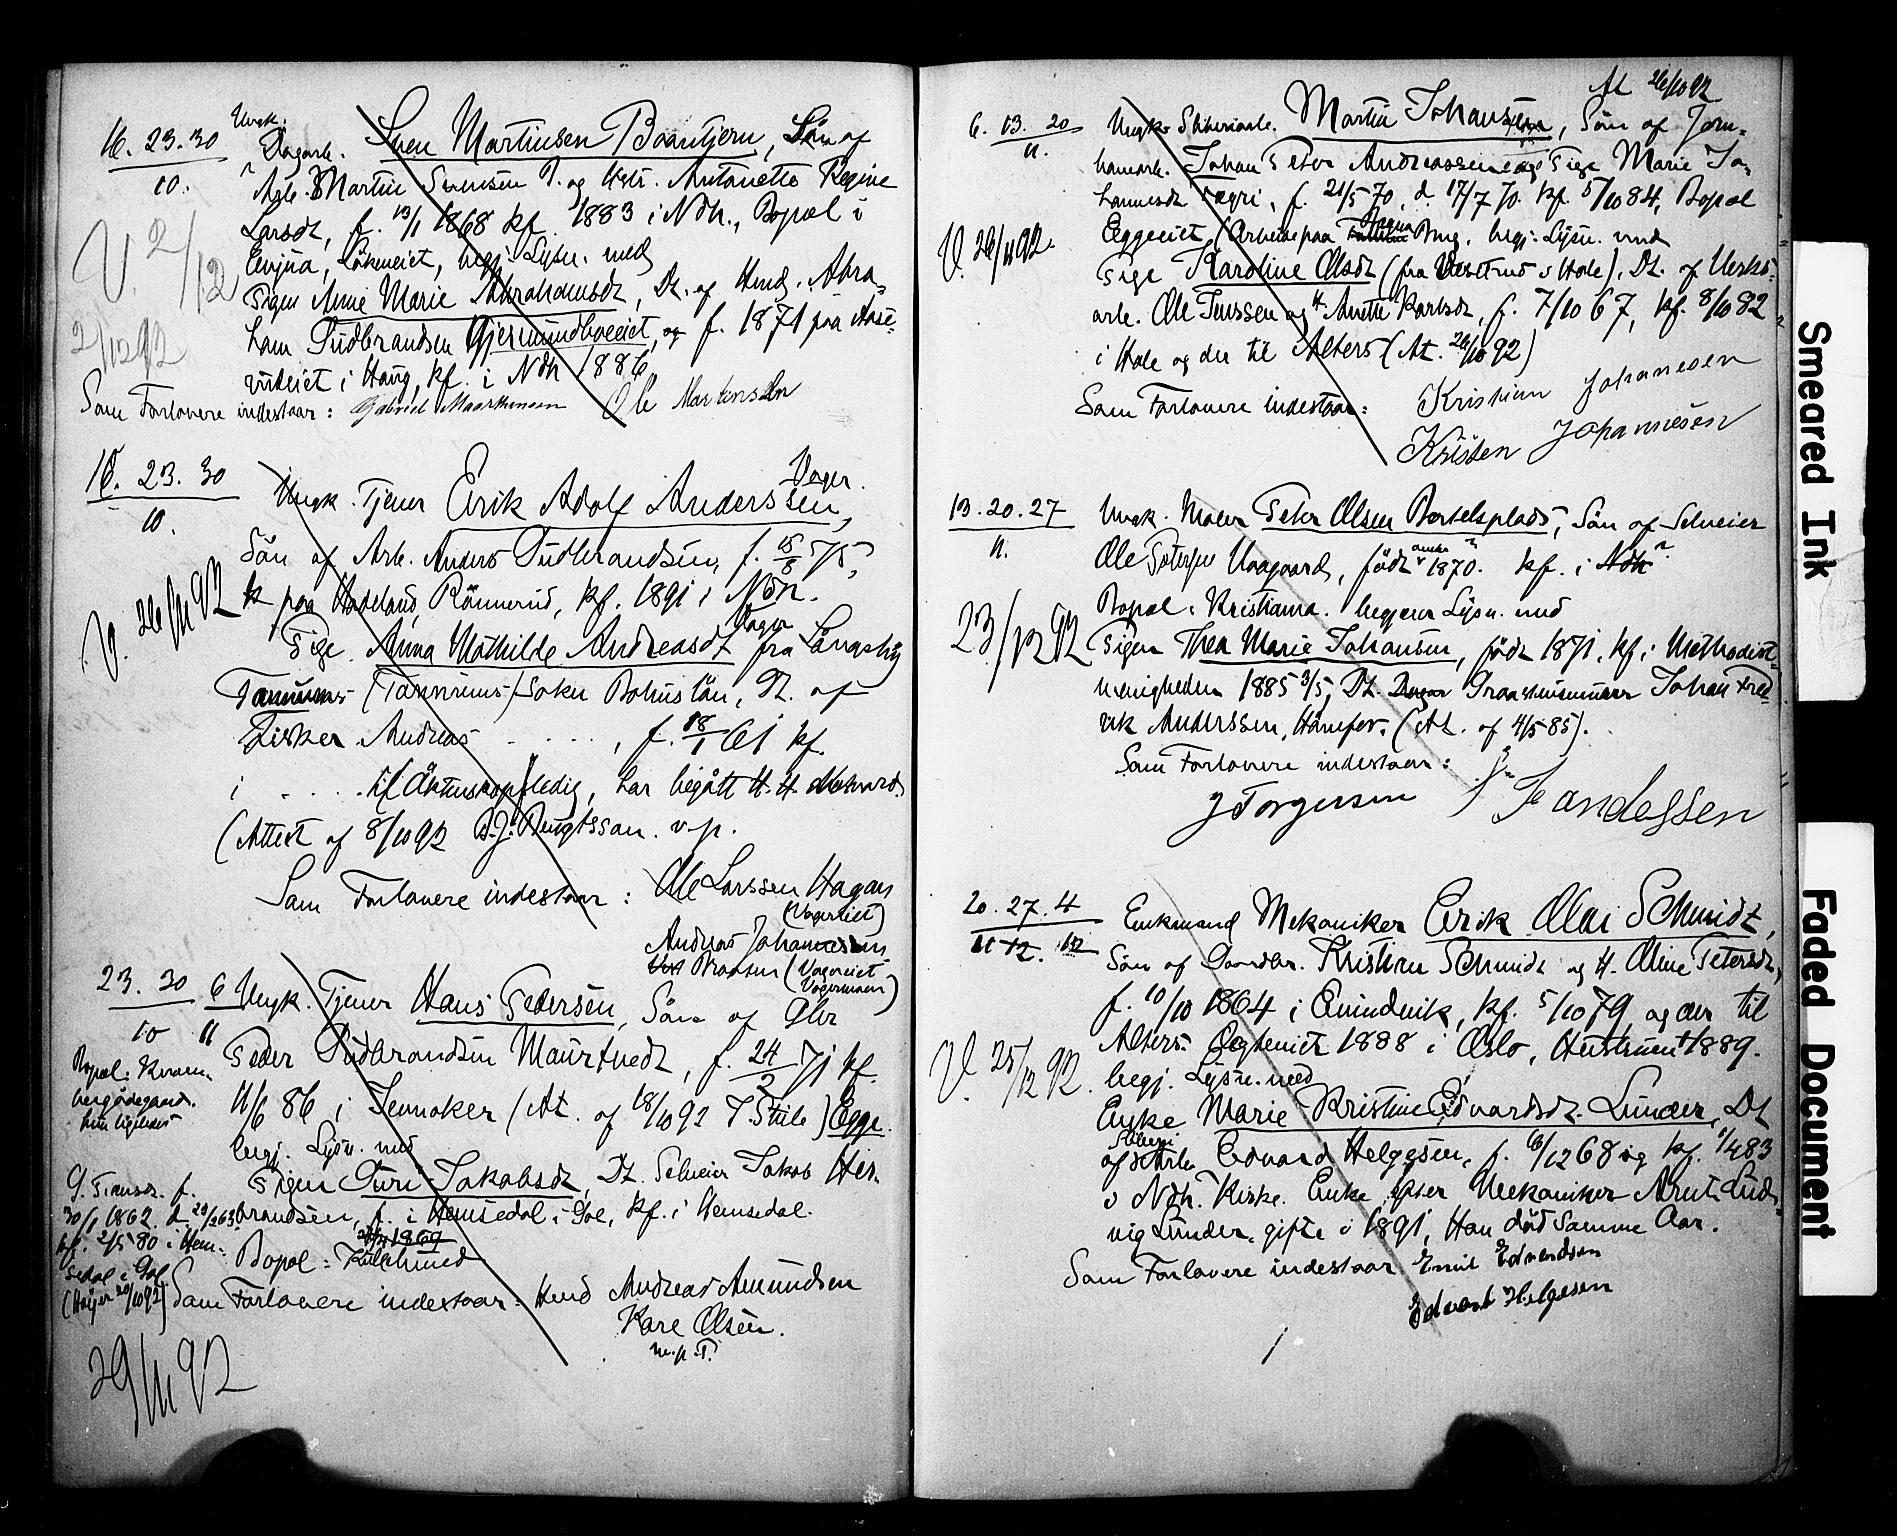 16. 23. 30
10.
Ungk.
Dagarb. Sven Martinsen Baantjern, Søn af
Arb. Martin Svensen B. og Hstr. Antonette Regine
Larsdt, f. 13/1 1868 kf. 1883 i Ndh., Bopæl i
begj. Lysn. med
Pigen Anne Marie Abrahamsdt, Dt. af Hmd. Abra-
ham Gudbrandsen Gjermundboeiet, og f. 1871 paa Aase-
i Haug, kf. i Ndh 1886
V. 2/12
2/12 92
Som Forlovere indestaar: Gabriel Marthinsen Ole Martinsen
16. 23. 30
10.
Ungk. Tjener Erik Adolf Anderssen, Vager.
Søn af Arb. Anders Gudbrandsen, f. 15/8 57,
paa Hadeland, Rønnerud, kf. 1891 i Ndh.
V. 26/11 92
Pige Anna Mathilde Andreasdt fra Långshy
Vager
Tanums (Tannums) Soken Bohuslän, Dt. af
Fisker Andreas . . . . , f. 18/1 61 kf.
i . . . . till Äktenskap ledig, har begått H. H. Nattvard.
(Attest af 8/10 92 B. J. Bengtsson. v. p.
Som Forlovere indestaar: Ole Larssen Hagan
(Vagereiet)
Andreas Johannesen
Braaten (Vagereiet
Vagermoen)
23. 30 6
10 11
Ungk. Tjener Hans Pedersen, Søn af Gbr
Peder Gudbrandsen Maurtvedt, f. 24/2 71 kf.
11/6 86 i Jevnaker (At. af 18/10 92 T Stile) Egge.
begj. Lysn. med
Pigen Guri Jakobsdt, Dt. Selveier Jakob Her-
brandsen, f. i Hemsedal i Gol, kf. i Hemsedal.
1869
Bopæl:
Bopæl: Kvern-
bergødegaard.
hun ligeledes
G. f.
30/1 1862. d. 23/2 63
kf. 2/5 80 i Hem-
sedal i Gol
(Høyer 20/10 92)
Som Forlovere indestaar: Hmd Andreas Amundsen
Kare Olsen.
m. p. P.
29/11 92
At 26/10 92
6. 13. 20
11.
Ungk. Sliberiarb. Martin Johansen, Søn af Jern-
banearb. Johan Petter Andreassen og Pige Marie Jo-
hannesdt Vægri, f. 21/5 70, d. 17/7 70. kf. 5/10 84, Bopæl
Eggeeiet (Arbeide paa Brug. begj. Lysn. med
V. 26/11 92.
Pige Karoline Olsdt (fra i Hole), Dt. af Verks-
arb. Ole Jenssen og H. Anette Karlsdt, f. 7/10 67, kf. 8/10 82
i Hole og der til Alters (At. 26/10 92)
Som Forlovere indestaar: Kristian Johannesen
Kristen Johannesen
13. 20. 27
11.
Ungk. Maler Peter Olsen Bertelsplads, Søn af Selveier
Ole Vaagaard, født 1870. kf. i Ndh
Bopæl: Kristiania. begjerer Lysn. med
23/12 92
Pigen Thea Marie Johansen, født 1871. kf. i Methodist-
menigheden 1885 3/5, Dt. Johan Fred-
rik Anderssen, Hønefos. (At. af 4/5 85).
Som Forlovere indestaar:
J Torgersen J F andessen
20. 27. 4
11 12. 12
Enkemand Mekaniker Erik Olai Schmidt,
Søn af Gaardbr. Kristian Schmidt og H. Oline Petersdt,
f. 10/10 1864 i Evindvik, kf. 5/10 79 og der til
Alters. Egteviet 1888 i Oslo, Hustruen † 1889.
V. 25/12 92.
begj. Lysn. med
Enke Marie Kristine Edvardsdt. Lunder, Dt
af Sliberi Arb. Edvard Helgesen, f. 6/12 68 og kf. 1/4 83
i Ndh. Kirke. Enke efter Mekaniker Arnt Lud-
vig Lunder, gifte i 1891, Han død samme Aar.
Som Forlovere indestaar Emil Edvardsen
Edvart Helgesen
Smeared Ink
Faded Document